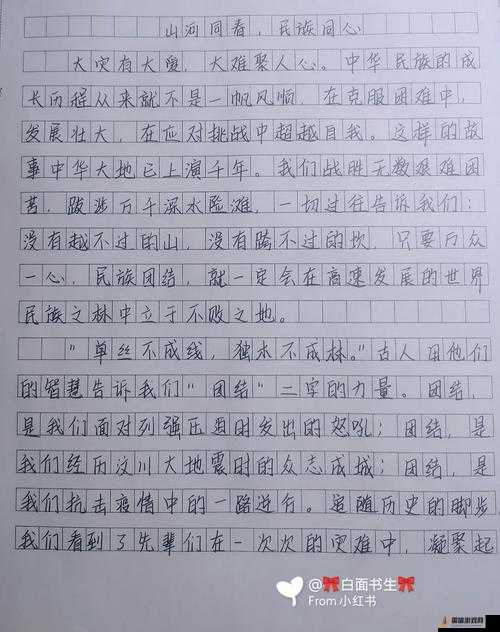 山河同春，民族同心
大灾有大爱，大难聚人心。中华民族的成
长历程从来就不是一帆风顺，在克服困难中，
发展壮大，在应对挑战中超越自我。这样的故
事中华大地已上演千年。我们战胜无数艰难困
苦，跋涉万千深水险滩，一切过往告诉我们：
没有越不过的山，没有腾不过的坎，只要万众
一心，民族团结，就一定会在高速发展的世界
民族之林中立于不败之地。
“单丝不成线，独木不成林。”古人用他们
的智慧告诉我们“团结”二字的力量。团结，
是我们面对列强压迫时发出的怒吼；团结，是
我们经历汶川大地震时的众志成城；团结，是
我们抗击疫情中的一路逆行。追随历史的脚步，
我们看到了先辈们在一次次的灾难中，凝聚起
@🎀白面书生🎀
From 小红书